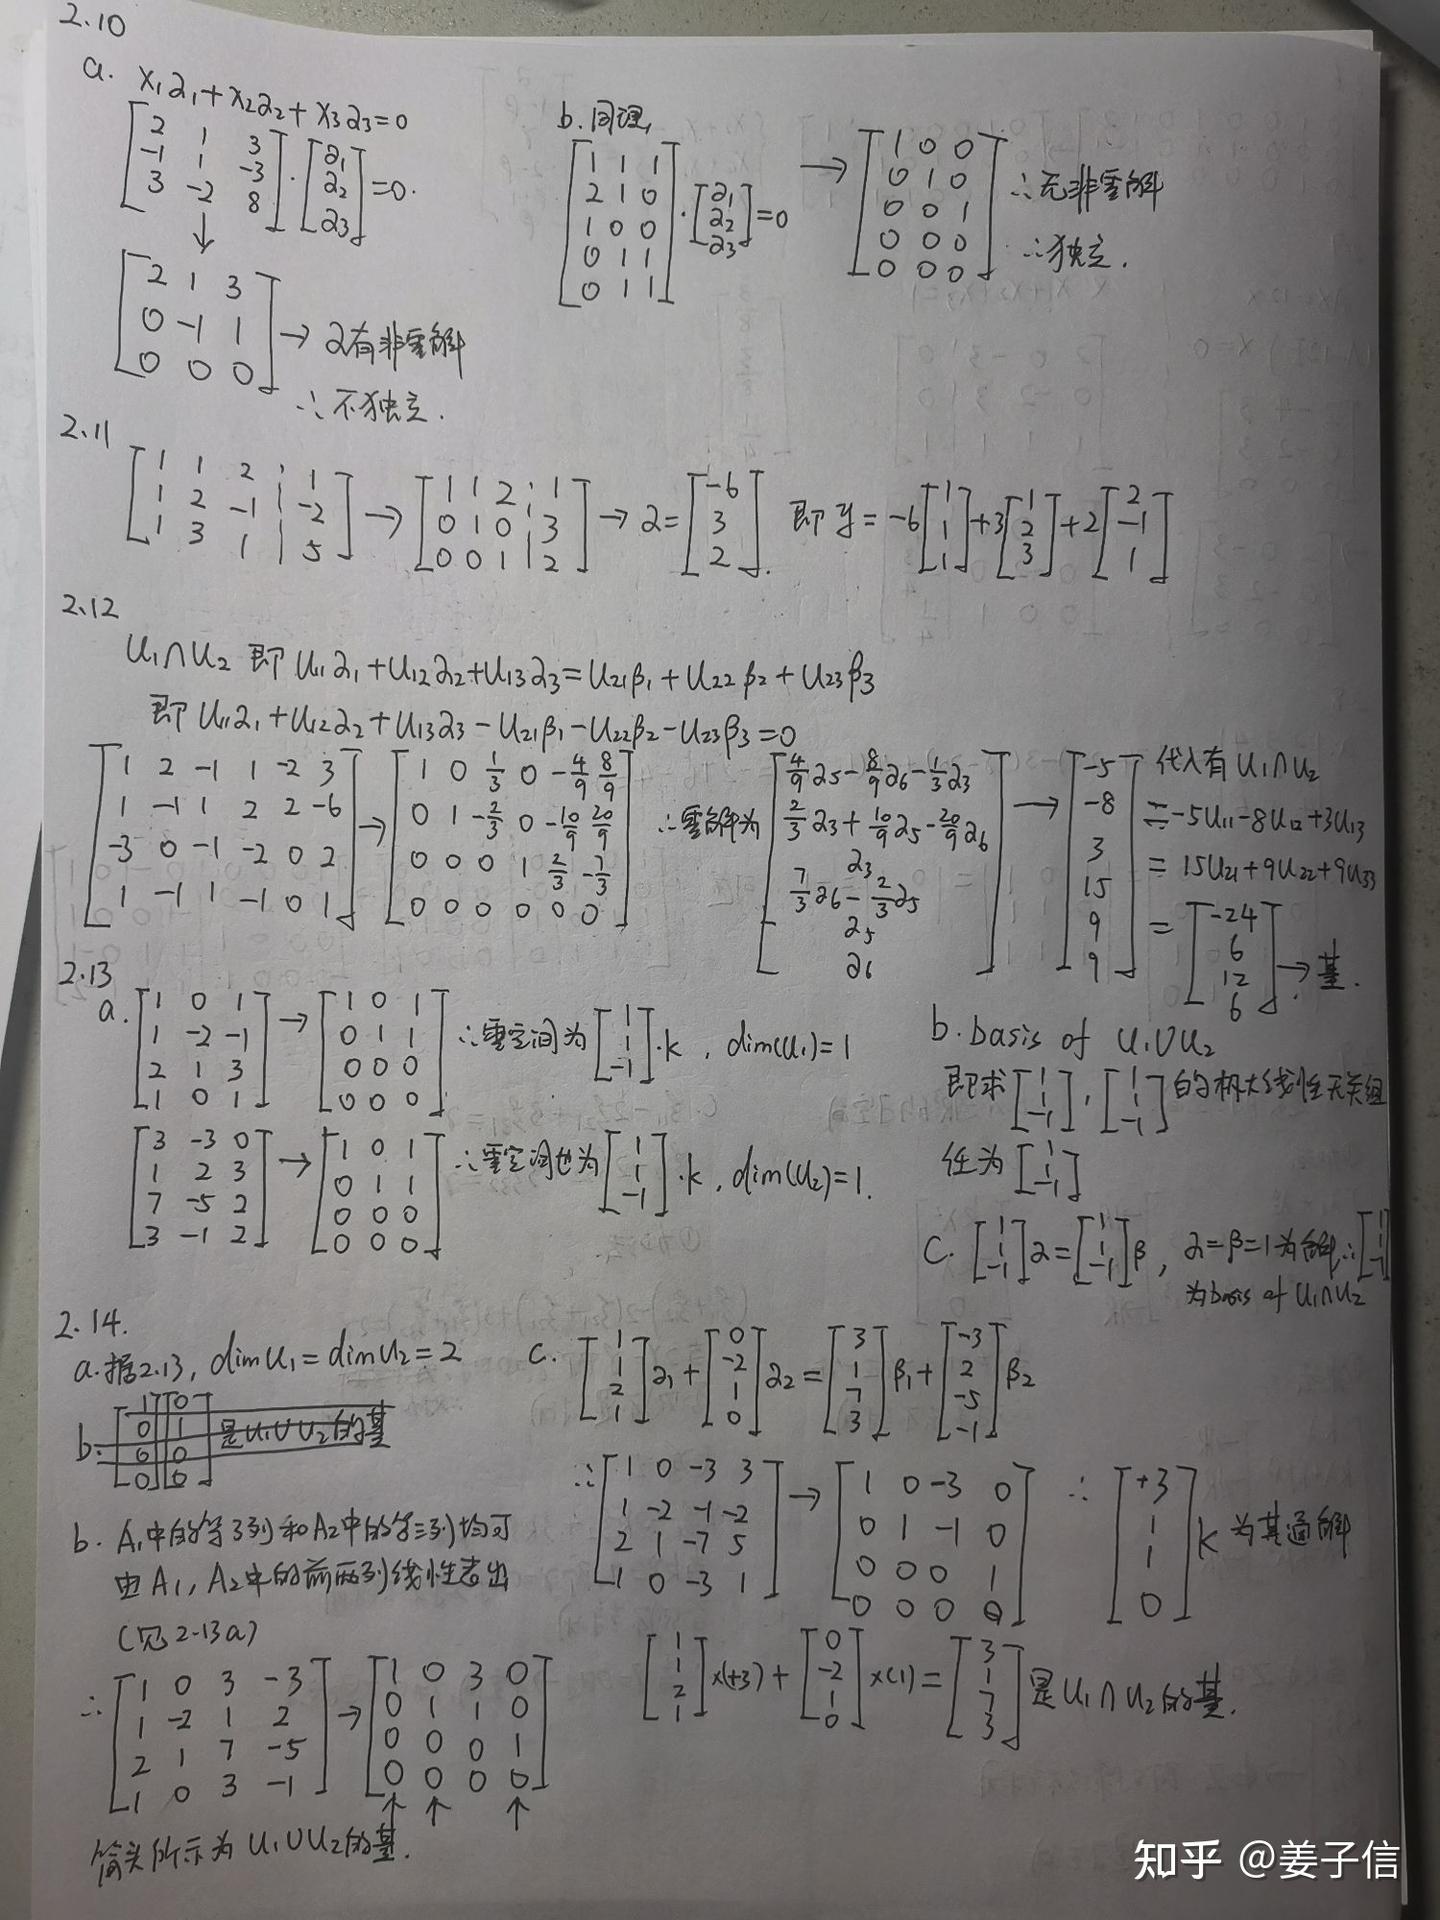 2.10
a. x₁α₁+x₂α₂+x₃α₃=0
[2 1 3
-1 1 -3
3 -2 8]·[α₁ α₂ α₃]=0.
↓
[2 1 3
0 -1 1
0 0 0] → α有非零解
∴不独立.
b. 同理,
[1 1 1
2 1 0
1 0 0
0 1 1
0 1 1]·[α₁ α₂ α₃]=0
→ [1 0 0
0 1 0
0 0 1
0 0 0
0 0 0]
∴无非零解
∴独立.
2.11
[1 1 2 | 1
1 2 -1 | -2
1 3 1 | 5]
→ [1 1 2 | 1
0 1 0 | 3
0 0 1 | 2]
→ α=[-6 3 2]. 即 y=-6[1 1 1]+3[1 2 3]+2[2 -1 1]
2.12
U₁∩U₂ 即 U₁₁α₁+U₁₂α₂+U₁₃α₃=U₂₁β₁+U₂₂β₂+U₂₃β₃
即 U₁₁α₁+U₁₂α₂+U₁₃α₃-U₂₁β₁-U₂₂β₂-U₂₃β₃=0
[1 2 -1 1 -2 3
1 -1 1 2 2 -6
-3 0 -1 -2 0 2
1 -1 1 -1 0 1]
→ [1 0 1/3 0 -4/9 8/9
0 1 -2/3 0 -10/9 20/9
0 0 0 1 2/3 -7/3
0 0 0 0 0 0]
∴零解为 [4/9α₅-8/9α₆-1/3α₃
2/3α₃+10/9α₅-20/9α₆
α₃
7/3α₆-2/3α₅
α₅
α₆]
→ [-5 -8 3 15 9 9]
代入有 U₁∩U₂
=-5U₁₁-8U₁₂+3U₁₃
=15U₂₁+9U₂₂+9U₃₃
=[-24 6 12 6] → 基.
2.13
a. [1 0 1
1 -2 -1
2 1 3
1 0 1]
→ [1 0 1
0 1 1
0 0 0
0 0 0]
∴零空间为[1 1 -1]·k , dim(U₁)=1
[3 -3 0
1 2 3
7 -5 2
3 -1 2]
→ [1 0 1
0 1 1
0 0 0
0 0 0]
∴零空间也为[1 1 -1]·k, dim(U₂)=1.
b. basis of U₁∪U₂
即求[1 1 -1],[1 1 -1]的极大线性无关组
任为[1 1 -1]
c. [1 1 -1]α=[1 1 -1]β, α=β=1为解,∴[1 1 -1]
为basis of U₁∩U₂
2.14.
a. 据2.13, dimU₁=dimU₂=2
b. [1 0 0 0][0 1 0 0] 是U₁∪U₂的基
b. A₁中的第3列和A₂中的第三列均可
由A₁,A₂中的前两列线性表出
(见2.13a)
∴ [1 0 3 -3
1 -2 1 2
2 1 7 -5
1 0 3 -1]
→ [1 0 3 0
0 1 1 0
0 0 0 1
0 0 0 0]
↑ ↑ ↑
箭头所示为U₁∪U₂的基.
c. [1 1 2 1]α₁+[0 -2 1 0]α₂=[3 1 7 3]β₁+[-3 2 -5 -1]β₂
∴ [1 0 -3 3
1 -2 -1 -2
2 1 -7 5
1 0 -3 1]
→ [1 0 -3 0
0 1 -1 0
0 0 0 1
0 0 0 0]
∴ [+3 1 1 0]k 为其通解
[1 1 2 1]×(+3)+[0 -2 1 0]×(1)=[3 1 7 3]是U₁∩U₂的基.
知乎 @姜子信